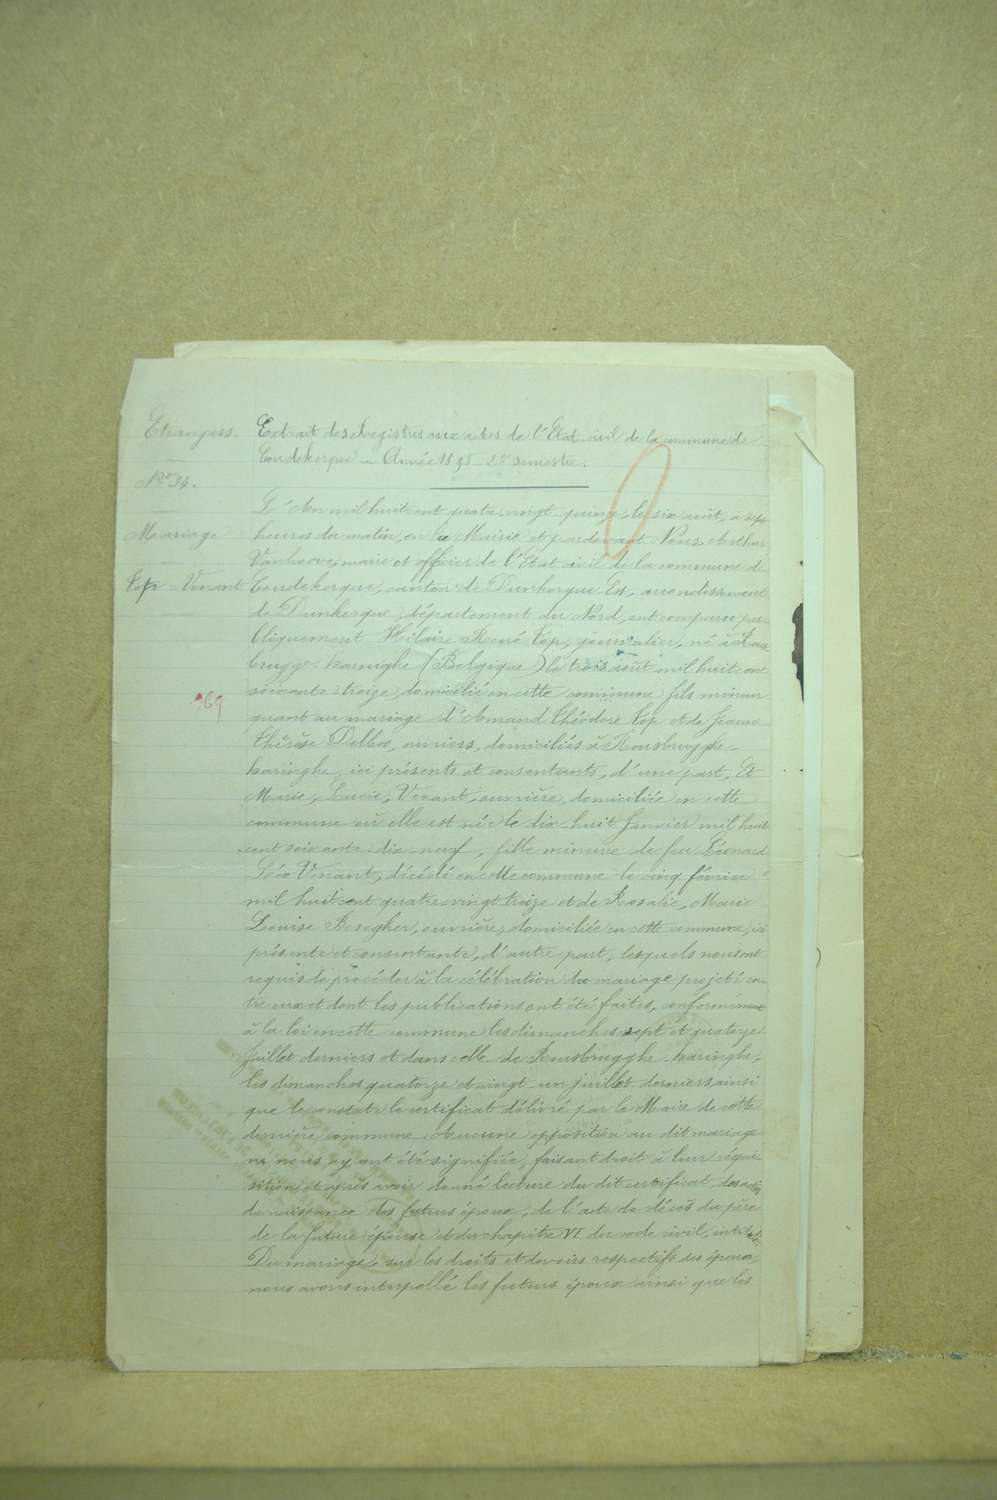 Etrangers
N° 34.
Mariage
Top - Venant
969
Extrait des Registres aux actes de l'Etat-civil de la commune de
Coudekerque - Année 1895 - 2e semestre.
L'An mil huit cent quatre-vingt-quinze, le six août, à sept
heures du matin, en la Mairie et pardevant Nous Arthur
Vanhoove, maire et officier de l'Etat civil de la commune de
Coudekerque, canton de Dunkerque Est, arrondissement
de Dunkerque, département du Nord, ont comparu pu-
bliquement Hilaire René Top, journalier, né à Rous
brugge-haringhe (Belgique) le trois août mil huit cent
soixante treize, domicilié en cette commune, fils mineur
quant au mariage d'Armand Théodore Top et de Jeanne
Thérèse Delbæ, ouvriers, domiciliés à Rousbrugghe-
haringhe, ici présents et consentants, d'une part; Et
Marie, Lucie, Venant, ouvrière, domiciliée en cette
commune où elle est née le dix-huit Janvier mil huit
cent soixante-dix-neuf, fille mineure de feu Léonard
Léo Venant, décédé en cette commune le cinq février
mil huit cent quatre-vingt treize et de Rosalie, Marie
Louise Besegher, ouvrière, domiciliée en cette commune, ici
présente et consentante, d'autre part, lesquels nous ont
requis de procéder à la célébration du mariage projeté en-
tre eux et dont les publications ont été faites, conformément
à la loi en cette commune les dimanches sept et quatorze
Juillet derniers et dans celle de Rousbrugghe-haringhe,
les dimanches quatorze et vingt-un juillet derniers ainsi
que le constate le certificat délivré par le Maire de cette
dernière commune. Aucune opposition au dit mariage
ne nous ayant été signifiée, faisant droit à leur réqui-
sition et après avoir donné lecture du dit certificat, des actes
de naissance des futurs époux, de l'acte de décès du père
de la future épouse et du chapitre VI du code civil, intitulé:
Du mariage, sur les droits et devoirs respectifs des époux,
nous avons interpellé les futurs époux ainsi que les